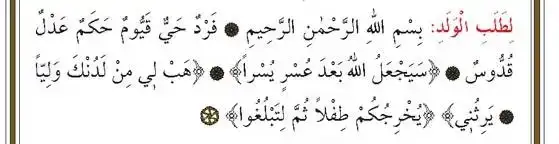 لِطَلَبِ الْوَلَدِ: بِسْمِ اللهِ الرَّحْمٰنِ الرَّحِيمِ ● فَرْدٌ حَيٌّ قَيُّومٌ حَكَمٌ عَدْلٌ
قُدُّوسٌ ● ﴿سَيَجْعَلُ اللهُ بَعْدَ عُسْرٍ يُسْراً﴾ ● ﴿هَبْ لِي مِنْ لَدُنْكَ وَلِيّاً
● يَرِثُنِي﴾ ﴿يُخْرِجُكُمْ طِفْلاً ثُمَّ لِتَبْلُغُوا﴾